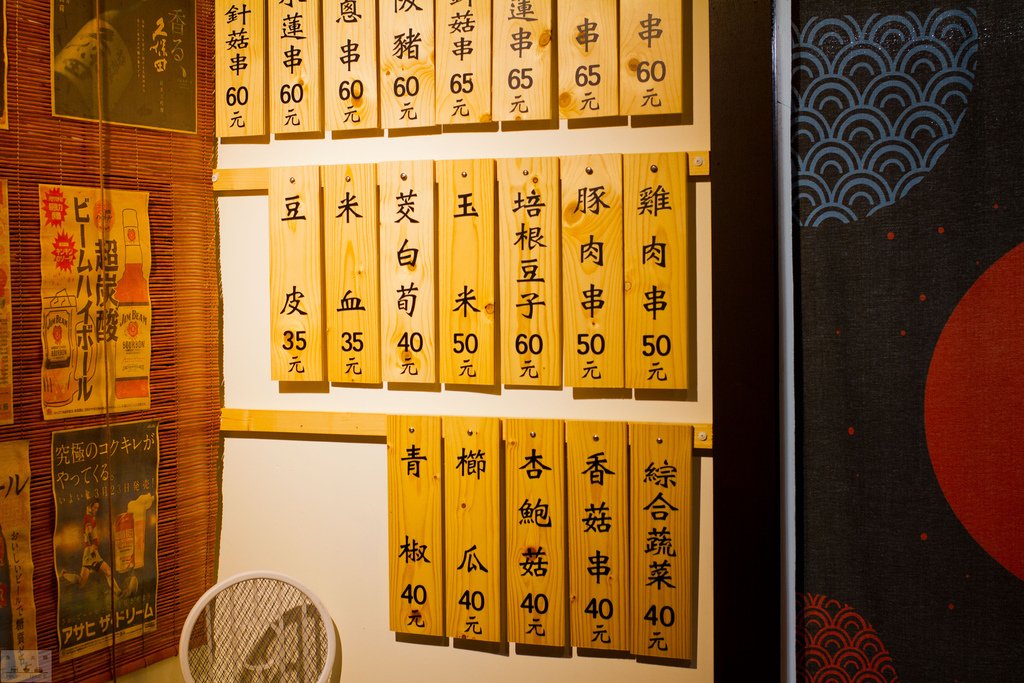 香る、
久保田
超炭酸
ビームハイボール
JIM BEAM
JIM BEAM
究極のコクキレが
やってくる。
アサヒ ザ・ドリーム
串 60元
串 65元
蓮串 65元
針菇串 65元
豬 60元
蔥串 60元
水蓮串 60元
針菇串 60元
雞肉串 50元
豚肉串 50元
培根豆子 60元
玉米 50元
茭白筍 40元
米血 35元
豆皮 35元
綜合蔬菜 40元
香菇串 40元
杏鮑菇 40元
櫛瓜 40元
青椒 40元